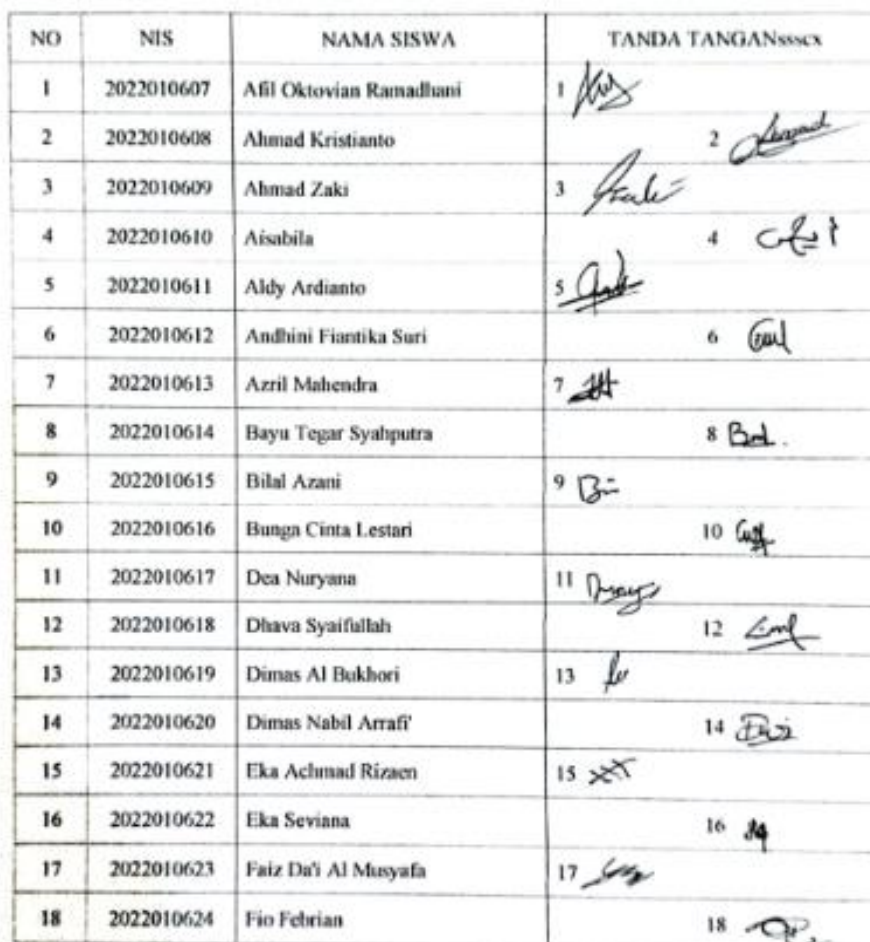 NO NIS NAMA SISWA TANDA TANGANssscx
1 2022010607 Afil Oktovian Ramadhani 1
2 2022010608 Ahmad Kristianto 2
3 2022010609 Ahmad Zaki 3
4 2022010610 Aisabila 4
5 2022010611 Aldy Ardianto 5
6 2022010612 Andhini Fiantika Suri 6
7 2022010613 Azril Mahendra 7
8 2022010614 Bayu Tegar Syahputra 8
9 2022010615 Bilal Azani 9
10 2022010616 Bunga Cinta Lestari 10
11 2022010617 Dea Nuryana 11
12 2022010618 Dhava Syaifullah 12
13 2022010619 Dimas Al Bukhori 13
14 2022010620 Dimas Nabil Arrafi' 14
15 2022010621 Eka Achmad Rizaen 15
16 2022010622 Eka Seviana 16
17 2022010623 Faiz Da'i Al Musyafa 17
18 2022010624 Fio Febrian 18